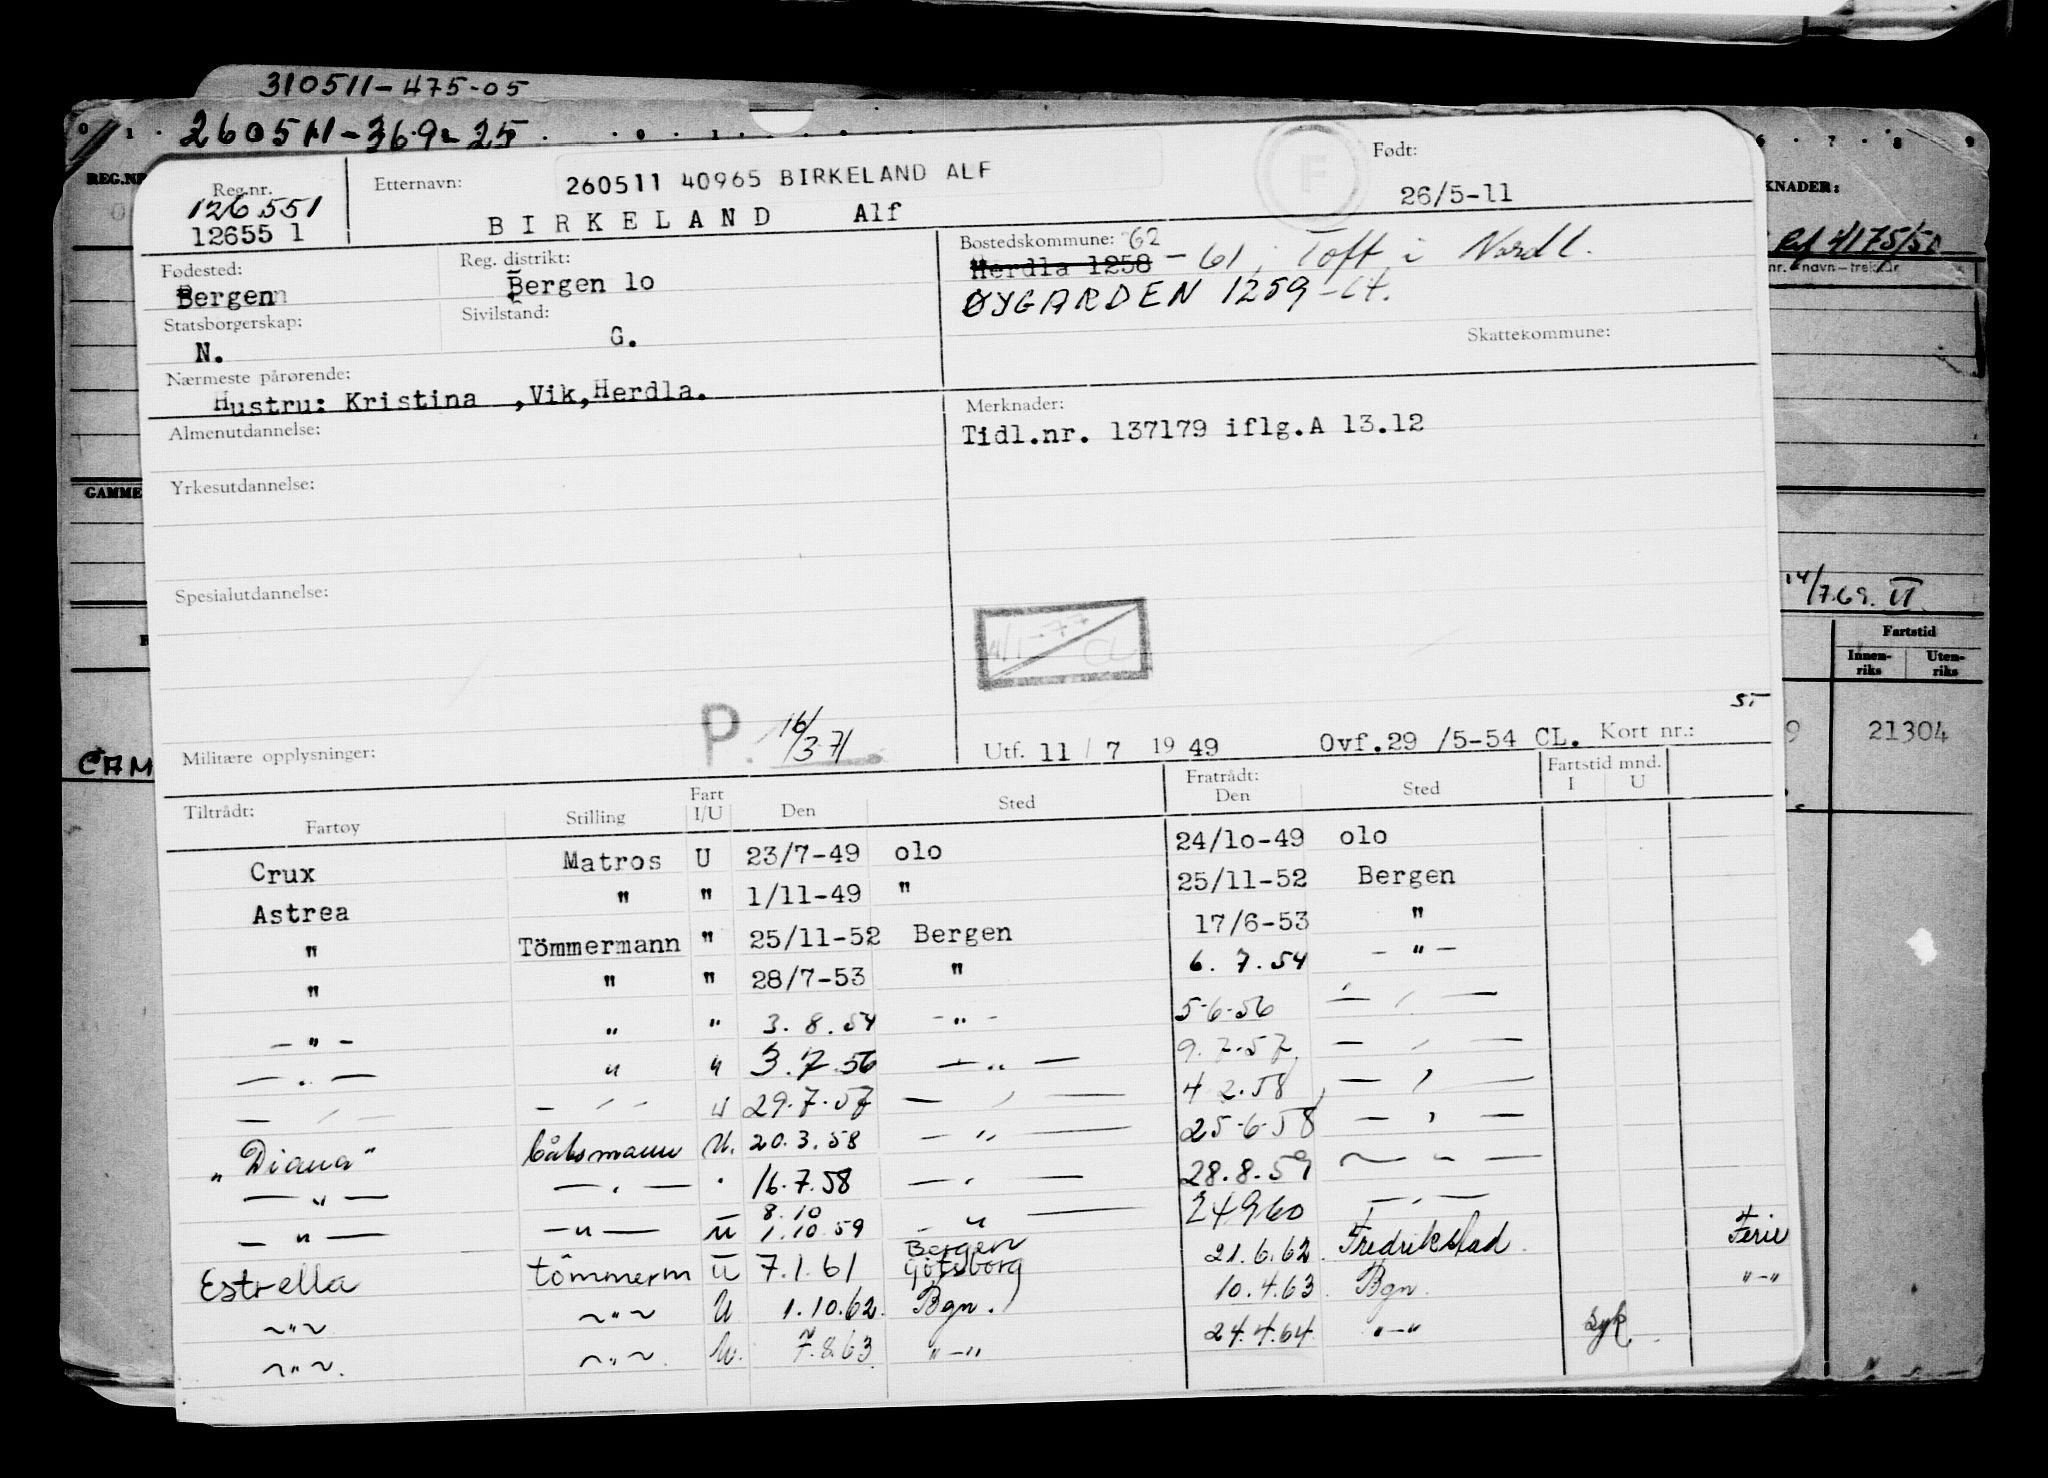 310511-475-05
0 1 . 260511-369-25 . . 0 . 1 . 6 . 7 . 8 9
REG.NR
Reg.nr.
126551
12655 1
Etternavn:
260511 40965 BIRKELAND ALF
BIRKELAND Alf
F
Født:
26/5-11
KNADER:
Fødested:
Bergen
Reg. distrikt:
Bergen 1o
Bostedskommune: 62
Herdla 1258 - 61, Toft i Nordl.
ØYGARDEN 1259 -64.
Statsborgerskap:
N.
Sivilstand:
G.
Skattekommune:
Nærmeste pårørende:
Hustru: Kristina ,Vik,Herdla.
Almenutdannelse:
Merknader:
Tidl.nr. 137179 iflg.A 13.12
Yrkesutdannelse:
GAMME
Spesialutdannelse:
14/7.69. II
Fartstid
Innen-riks
Uten-riks
9 21304
CAM
Militære opplysninger:
P. 16/3 71
Utf. 11 / 7 19 49 Ovf.29 /5-54 CL. Kort nr.:
Tiltrådt:
Fartøy Stilling Fart I/U Den Sted Fratrådt: Den Sted Fartstid mnd. I U
Crux Matros U 23/7-49 olo 24/1o-49 olo
Astrea " " 1/11-49 " 25/11-52 Bergen
" Tömmermann " 25/11-52 Bergen 17/6-53 "
" " " 28/7-53 " 6. 7. 54 - " -
- " - " " 3. 8. 54 - " - 5-6-56 - " -
- " - " " 3. 7. 56 - " - 9. 7. 57 - " -
- " - - " - " 29. 7. 57 - " - 4 2. 58 - " -
"Diana" båtsmann U. 20. 3. 58 - " - 25-6-58 - " -
- " - - " - " 16. 7. 58 - " - 28. 8. 59 - " -
8.10
- " - - " - u 1. 10. 59 - " - 24 9 60 - " -
Bergen
Estrella tömmerm u 7. 1. 61 Göteborg 21. 6. 62. Fredrikstad Ferie
~ " ~ ~ " ~ U 1. 10. 62. Bgn. 10. 4. 63. Bgn. " - "
~ " ~. ~ " ~. U. 7. 8. 63. " - " 24. 4. 64. " - " Syk